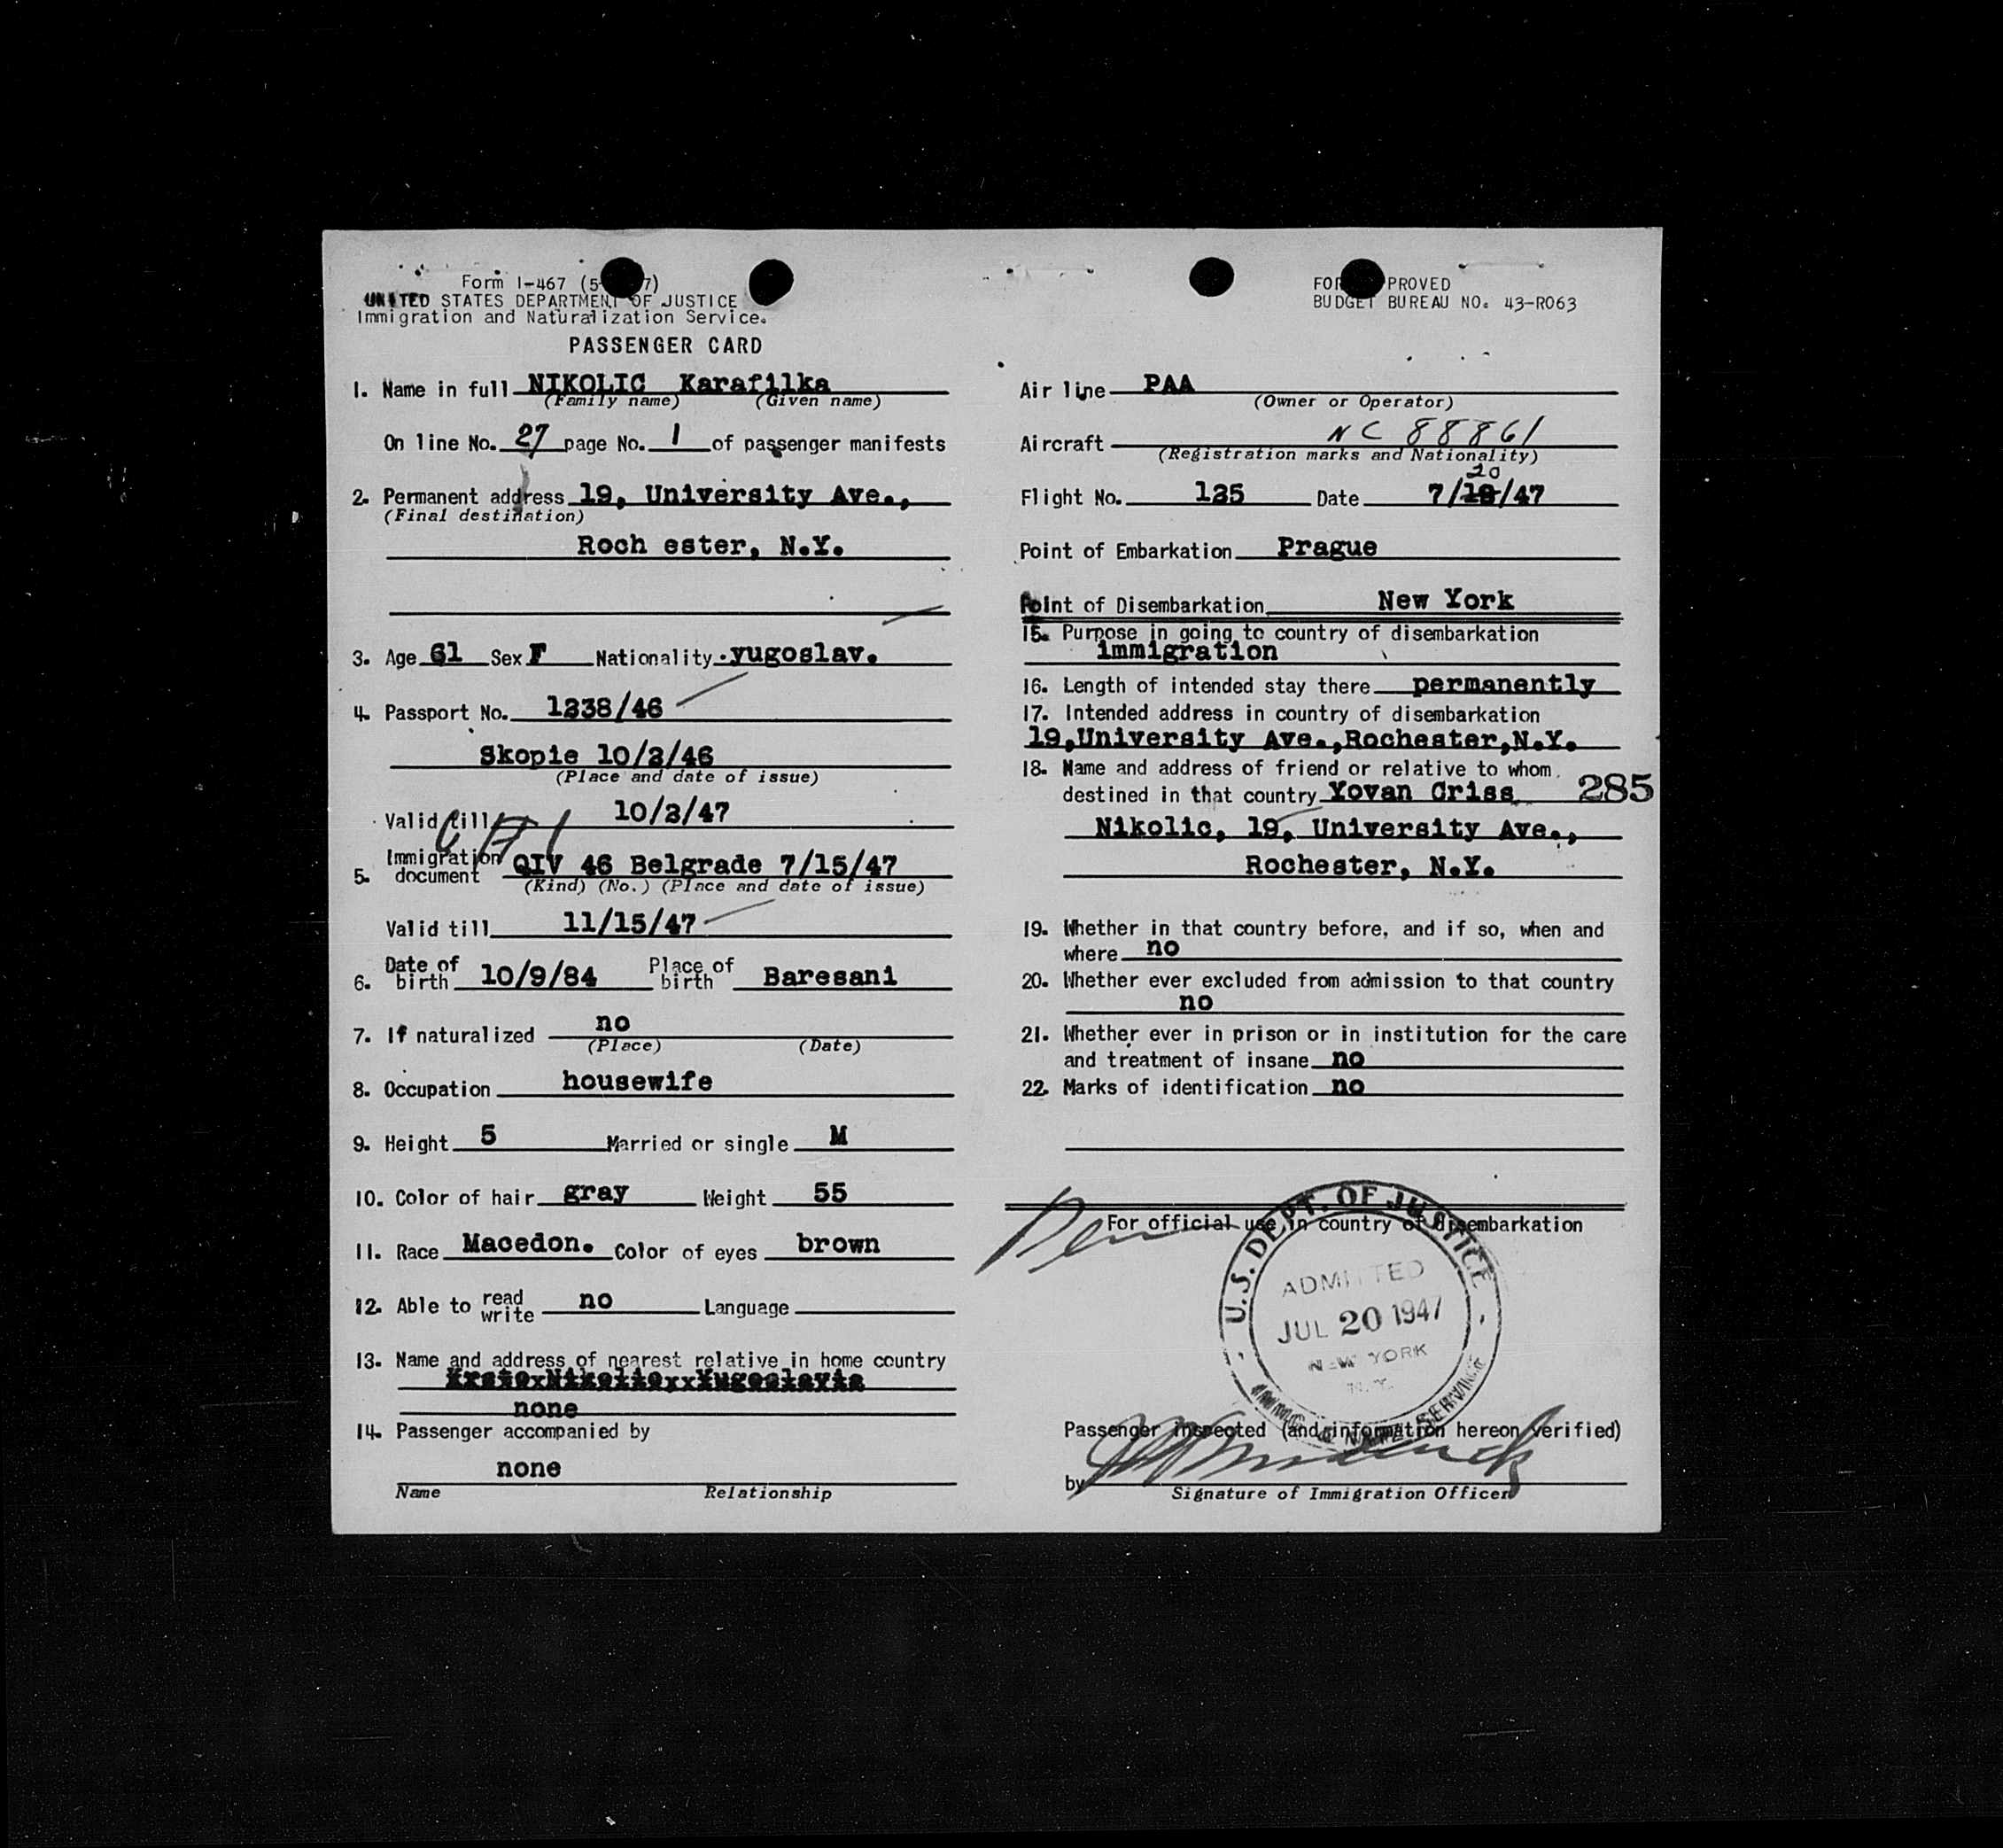 Form I-467 (5- 7)
UNITED STATES DEPARTMENT OF JUSTICE
Immigration and Naturalization Service.
PASSENGER CARD
1. Name in full NIKOLIC Karafilka
(Family name) (Given name)
On line No. 27 page No. 1 of passenger manifests
2. Permanent address 19, University Ave.,
(Final destination)
Roch ester, N.Y.
3. Age 61 Sex F Nationality yugoslav.
4. Passport No. 1238/46
Skopie 10/2/46
(Place and date of issue)
Valid till 10/2/47
5. Immigration document QIV 46 Belgrade 7/15/47
(Kind) (No.) (Place and date of issue)
Valid till 11/15/47
6. Date of birth 10/9/84 Place of birth Baresani
7. If naturalized no
(Place) (Date)
8. Occupation housewife
9. Height 5 Married or single M
10. Color of hair gray Weight 55
11. Race Macedon. Color of eyes brown
12. Able to read write no Language
13. Name and address of nearest relative in home country
none
14. Passenger accompanied by
none
Name Relationship
FOR PROVED
BUDGET BUREAU NO. 43-R063
Air line PAA
(Owner or Operator)
Aircraft NC 88861
(Registration marks and Nationality)
20
Flight No. 125 Date 7/18/47
Point of Embarkation Prague
Point of Disembarkation New York
15. Purpose in going to country of disembarkation
immigration
16. Length of intended stay there permanently
17. Intended address in country of disembarkation
19,University Ave.,Rochester,N.Y.
18. Name and address of friend or relative to whom
destined in that country Yovan Criss 285
Nikolic, 19, University Ave.,
Rochester, N.Y.
19. Whether in that country before, and if so, when and
where no
20. Whether ever excluded from admission to that country
no
21. Whether ever in prison or in institution for the care
and treatment of insane no
22. Marks of identification no
For official use in country of disembarkation
U.S. DEPT. OF JUSTICE
ADMITTED
JUL 20 1947
NEW YORK
N.Y.
IMMIG. & NATZ. SERVICE
Passenger inspected (and information hereon verified)
by
Signature of Immigration Officer